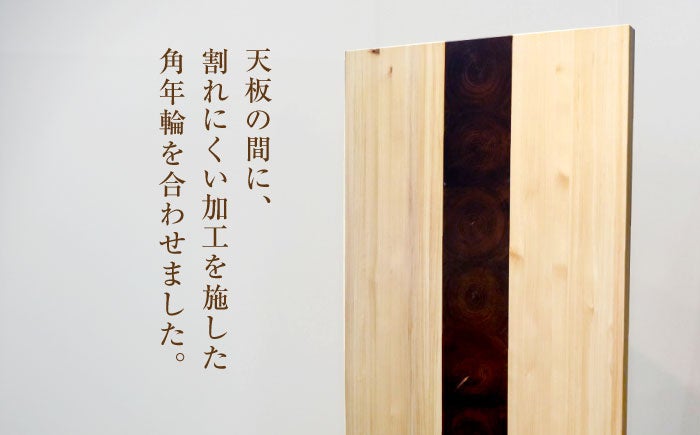 天板の間に、
割れにくい加工を施した
角年輪を合わせました。